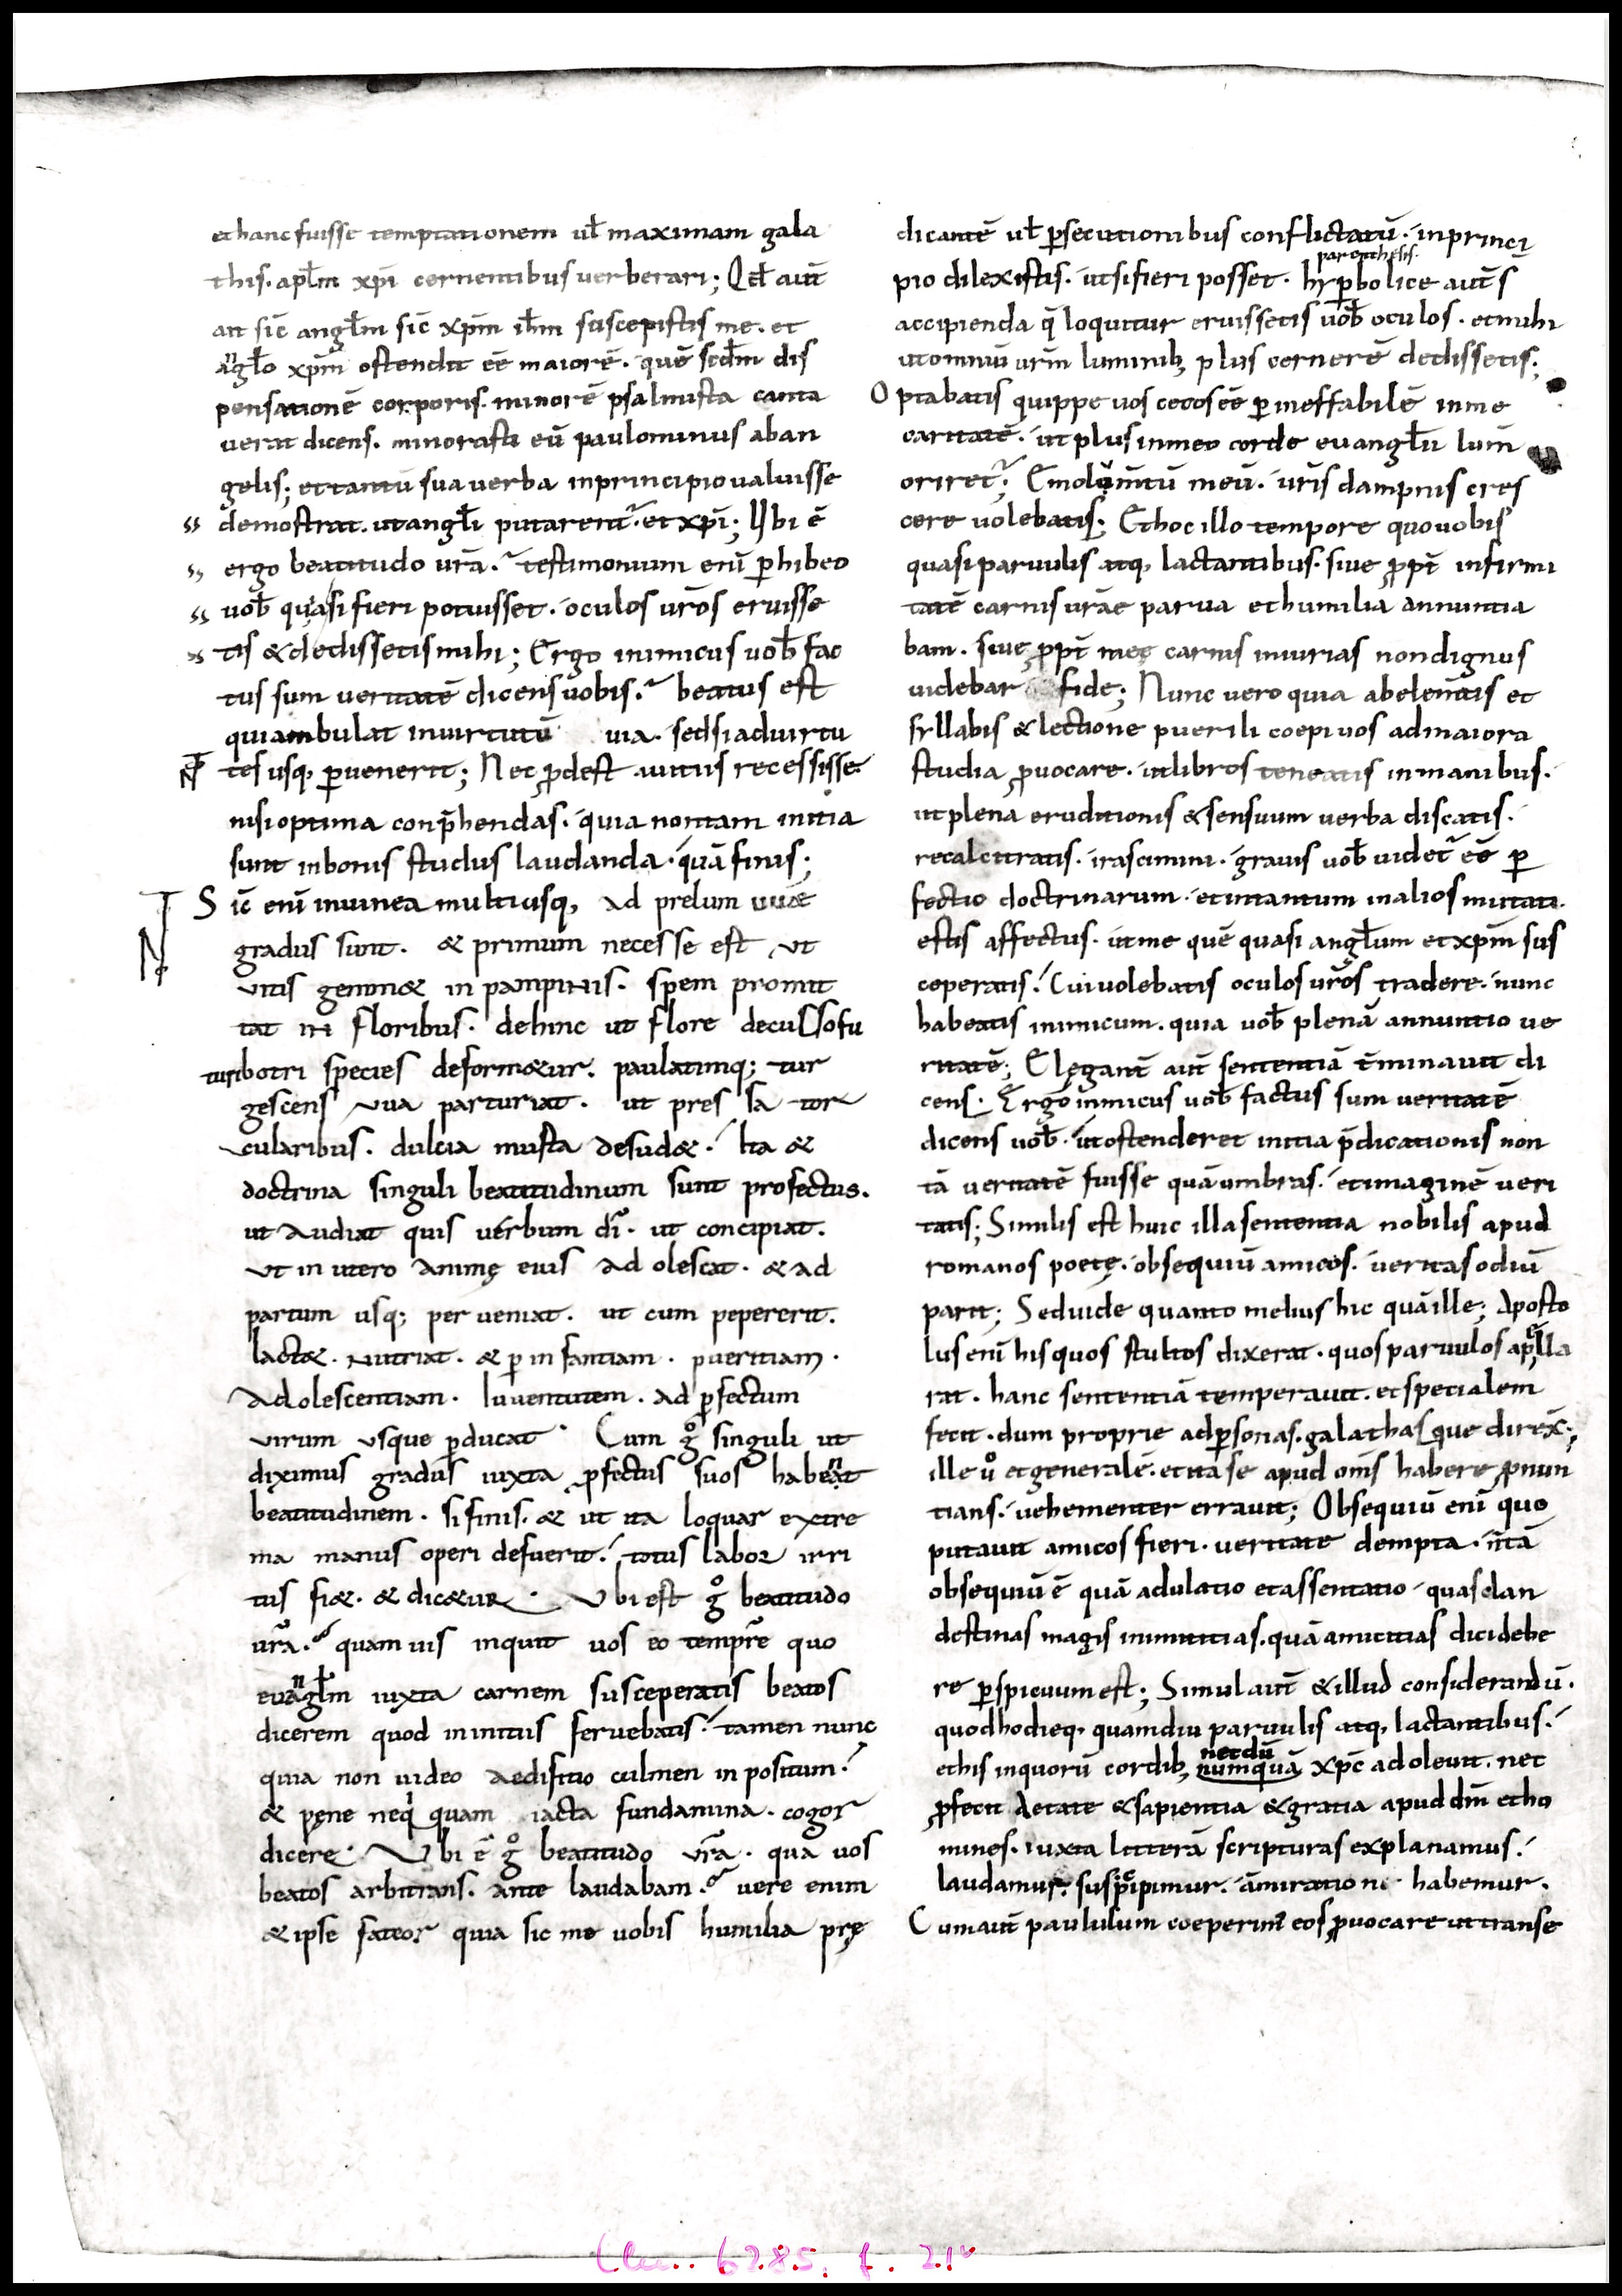 et hanc fuisse temptationem ul̄ maximam gala
this. apl̄m xpi cernentibus verberari; Qd̄ aut̄
ait sic̄ angl̄m sic̄ xp̄m ih̄m suscepistis me. et
angl̄o xp̄m ostendit eē maiorē. quē scd̄m dis
pensationē corporis. minorē psalmista canta
verat dicens. minorasti eū paulominus aban
gelis; et tantū sua verba inprincipio valuisse
demostrat. ut angl̄i putarent̄. et xp̄i; Ubi ē
ergo beatitudo ur̄a. testimonium enī phibeo
uob̄ quasi fieri potuisset. oculos ur̄os eruisse
tis & dedissetis mihi; Ergo inimicus uob̄ fac
tus sum veritatē dicens uobis. beatus est
qui ambulat in uirtutū uia. sed si ad uirtu
tes usq, puenerit; Nec pdest uitiis recessisse
nisi optima conp̄hendas. quia non tam initia
sunt in bonis studiis laudanda. quā finis;
Sic̄ enī in uinea multi usq, ad prelum uuae
gradus sunt. & primum necesse est ut
uitis gemm& in pampinis. spem promit
tat in floribus. dehinc ut flore decusso fu
turi botri species deform&ur. paulatimq; tur
gescens uua parturiat. ut pres sa tor
cularibus. dulcia musta desud&. Ita &
doctrina singuli beatitudinum sunt profectus.
ut audiat quis verbum dī. ut concipiat.
ut in utero animę eius ad olescat. & ad
partum usq; per veniat. ut cum pepererit.
lact&. nutriat. & p infantiam. pueritiam.
adolescentiam. Iuventutem. ad pfectum
virum usque pducat. Cum g° singuli ut
diximus gradus iuxta pfectus suos habeant
beatitudinem. si finis. & ut ita loquar extre
ma manus operi defuerit. totus labor irri
tus fi&. & dic&ur. Ubi est g° beatitudo
ur̄a. quam uis inquit uos eo tempr̄e quo
euangl̄m iuxta carnem susceperatis beatos
dicerem quod in initiis feruebatis. tamen nunc
quia non uideo aedifitio culmen in positum.
& pęne neq quam iacta fundamina. cogor
dicere. Ubi ē g° beatitudo ur̄a. qua uos
beatos arbitrans. ante laudabam. vere enim
& ipse fateor quia sic me uobis humilia prę
dicantē ul̄ psecutionibus conflictatū. in princi
parenthesis.
pio dilexistis. ut si fieri posset. hyp̄bolice aut̄ s
accipienda q̄ loquitur eruissetis uob̄ oculos. et mihi
ut omniū ur̄m luminib, plus cernerē dedissetis;
Optabatis quippe uos cecos eē p ineffabilē in me
caritatē. ut plus in meo corde euangl̄ii lum̄
oriret̄; Emolum̄tū meū. ur̄is dampnis cres
cere uolebatis; Et hoc illo tempore quo uobis
quasi parvulis atq, lactantibus. sive ppt̄ infirmi
tatē carnis ur̄ae parva et humilia annuntia
bam. sive ppt̄ meę carnis iniurias non dignus
uidebar fide; Nunc vero quia ab elem̄tis et
syllabis & lectione puerili coepi uos ad maiora
studia puocare. ut libros teneatis in manibus.
ut plena eruditionis & sensuum verba discatis.
recalcitratis. irascimini. gravis uob̄ uidet̄ eē p
fectio doctrinarum. et intantum in alios mutati.
estis affectus. ut me quē quasi angl̄um et xp̄m sus
ceperatis. Cui uolebatis oculos ur̄os tradere. nunc
habeatis inimicum. quia uob̄ plenā annuntio ve
ritatē; Elęgant̄ aut̄ sententiā t̄minavit di
cens. Ergo inimicus uob̄ factus sum veritatē
dicens uob̄. ut ostenderet initia p̄dicationis non
tā veritatē fuisse quā umbras. et imaginē veri
tatis; Similis est huic illa sententia nobilis apud
romanos poetę. obsequiū amicos. veritas odiū
parit; Sed vide quanto melius hic quā ille; Aposto
lus enī his quos stultos dixerat. quos parvulos apella
rat. hanc sententiā temperavit. et specialem
fecit. dum proprie ad psonas. galathas que direx̄;
ille u° et generalē. et ita se apud om̄s habere pnun
tians. vehementer erravit; Obsequiū enī quo
putavit amicos fieri. veritate dempta. n̄ tā
obsequiū ē quā adulatio et assentatio. quas clan
destinas magis inimicitias. quā amicitias dici debe
re pspicuum est; Simul aut̄ & illud considerandū.
quod hodieq, quamdiu parvulis atq, lactantibus.
necdū
et his in quorū cordib, numquā xpc̄ adolevit. nec
pfecit aetate & sapientia & gratia apud dm̄ et ho
mines. iuxta litterā scripturas explanamus.
laudamur. suspipimur. āmirationi habemur.
Cum aut̄ paululum coeperim̄ eos puocare ut transe
Clm. 6285, f. 21v